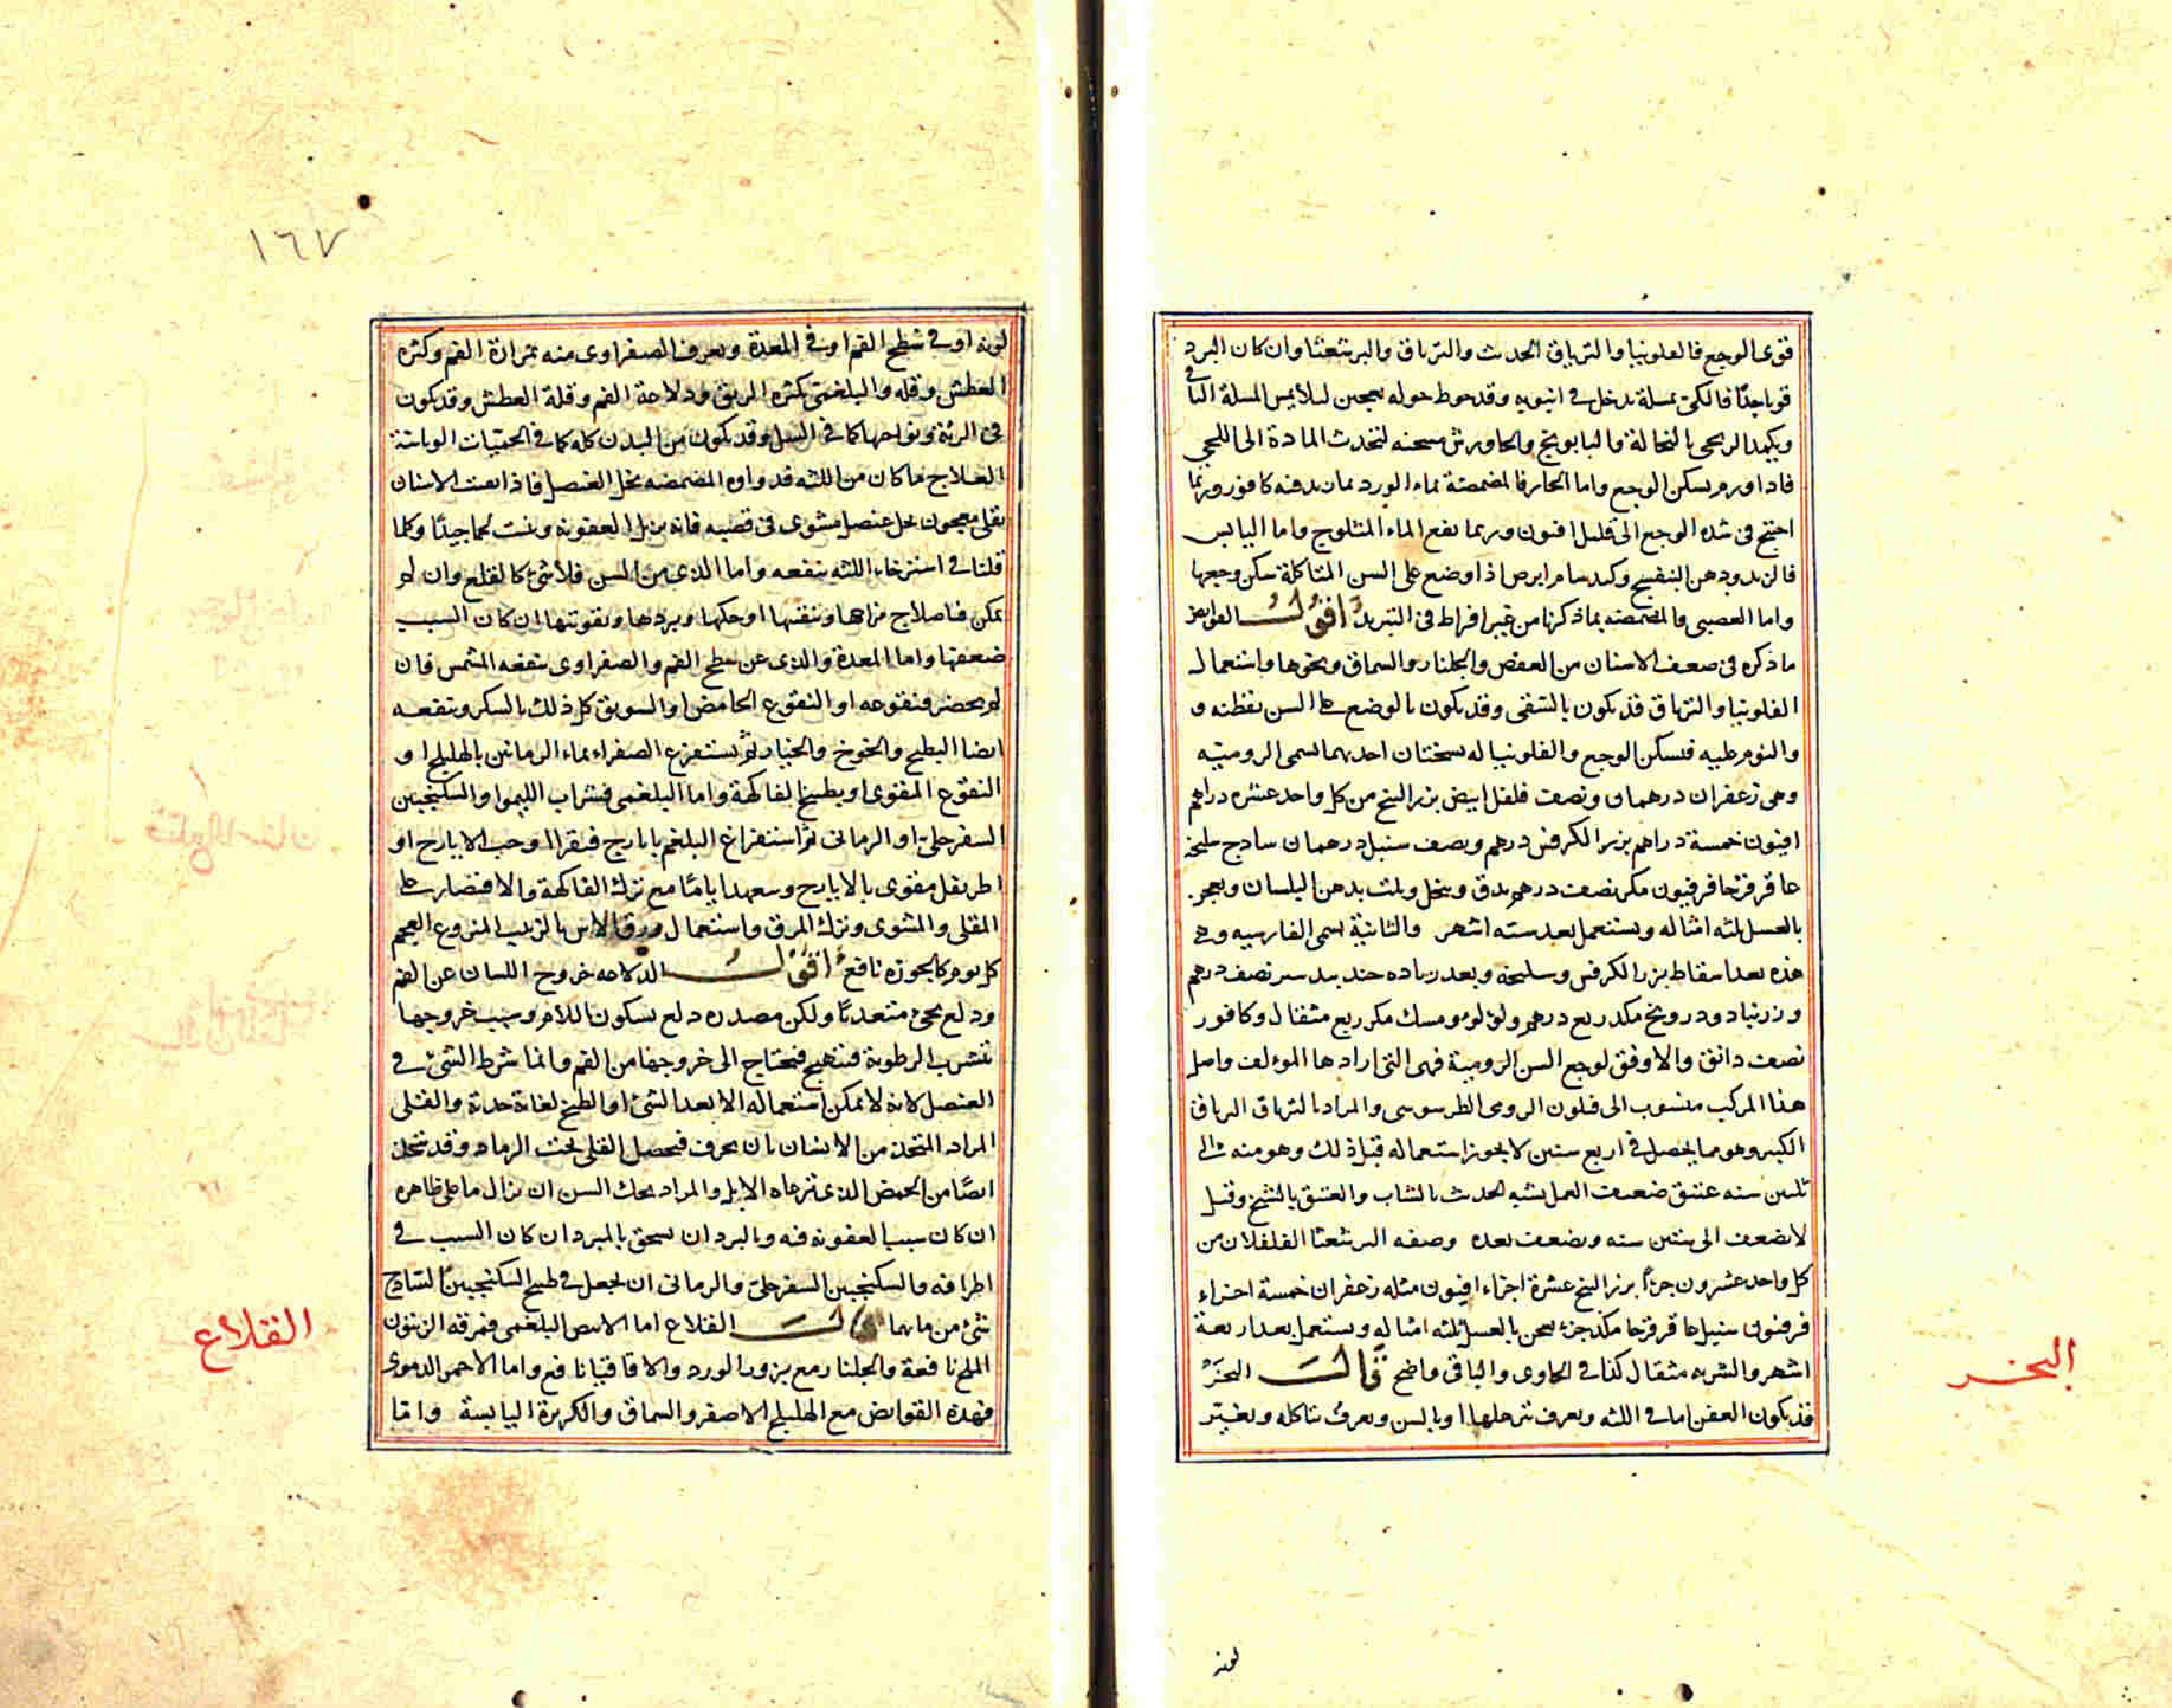 قوى الوجع فالفلونيا والترياق الحدث والترياق والبرشعثا وان كان البرد
قويا جدا فالكى بمسلة تدخل فى انبوبه وقد حوط حوله بعجين لئلا يمس المسلة الباقى
ويكمد الريحى بالنخالة والبابونج والجاورش مسخنه لتحدث المادة الى اللحى
فاذا ورم سكن الوجع واما الحار فالمضمضة بماء الورد مان يدفنه كافور وربما
احتيج فى شده الوجع الى قليل افيون وربما نفع الماء المثلوج واما اليابس
فالزبد ودهن البنفسج وكبد سام ابرص اذا وضع على السن المتاكلة سكن وجعها
واما العصبى فالمضمضه بما ذكرنا من غير افراط فى التبريد اقول القوابض
ما ذكره فى ضعف الاسنان من العفص والجلنار والسماق ونحوها واستعمال
الفلونيا والترياق قد يكون بالسقى وقد يكون بالوضع على السن بقطنه و
والنوم عليه فيسكن الوجع والفلونيا له نسختان احديهما تسمى الروميه
وهى زعفران درهمان ونصف فلفل ابيض بزر البنج من كل واحد عشره دراهم
افيون خمسة دراهم بزر الكرفس درهم ونصف سنبل درهمان سادج سليخه
عاقرقرحا فرفيون مكر نصف درهم يدق وينخل ويلت بدهن البلسان ويعجن
بالعسل ثلثه امثاله ويستعمل بعد سته اشهر والثانية تسمى الفارسيه وهى
هذه بعد اسقاط بزر الكرفس وسليخه وبعد زياده جندبيدستر نصف درهم
وزرنباد ودرونج مكد ربع درهم ولؤلؤ ومسك مكر ربع مثقال وكافور
نصف دانق والاوفق لوجع السن الرومية فهى التى ارادها المؤلف واصل
هذا المركب منسوب الى فلون الرومى الطرسوسى والمراد بالترياق الترياق
الكبير وهو مما يحصل فى اربع سنين لا يجوز استعماله قبل ذلك وهو منه الى
ثلثين سنه عتيق ضعيف العمل يشبه الحدث بالشاب والعتيق بالشيخ وقيل
لا يضعف الى ستين سنه ويضعف بعده وصفه البرشعثا الفلفلان من
كل واحد عشرون جزءا بزر البنج عشرة اجزاء افيون مثله زعفران خمسة اجزاء
فرفيون سنبل عاقرقرحا مكد جزء يعجن بالعسل ثلثه امثاله ويستعمل بعد اربعة
اشهر والشربه مثقال كذا فى الحاوى والباقى واضح قال البخر
قد يكون العفن اما فى اللثه ويعرف بترهلها او بالسن ويعرف بتاكله وتغير
البخر
لونه
١٦٧
لونه او فى سطح الفم او فى المعدة ويعرف الصفراوى منه بمرارة الفم وكثره
العطش وقله والبلغمى بكثره الريق ودلاعة الفم وقلة العطش وقد يكون
فى الرئة ونواحيها كما فى السل وقد يكون من البدن كله كما فى الحميات الوبائية
العلاج ما كان من اللثه فدواوه المضمضه بخل العنصل فاذا نقيت الاسنان
بقلى معجون بخل عنصل مشوى فى قصبه فانه يزيل العفونه وينبت لحما جيدا وكلما
قلنا فى استرخاء اللثه ينفعه واما الذى من السن فلا شئ كالقلع وان لم
يمكن فباصلاح مزاجها وتنقيتها او حكها وبردها وتقويتها ان كان السبب
ضعفها واما المعدة والذى عن سطح الفم والصفراوى ينفعه المشمش فان
لم يحضر فنقوعه او النقوع الحامض او السويق كل ذلك بالسكر وينفعه
ايضا البطيخ والخوخ والخيار ثم يستفرغ الصفراء بماء الرمانين بالهليلج او
النقوع المقوى او بطبيخ الفاكهة واما البلغمى فشراب الليمو او السكنجبين
السفرجلى او الرمانى ثم استفراغ البلغم بايارج فيقرا او حب الايارج او
اطريفل مقوى بالايارج وسعهدا ياما مع ترك الفاكهة والاقتصار على
المقلى والمشوى وترك المرق واستعمال ورق الاس بالزبيب المنزوع العجم
كل يوم كالجوزه نافع اقول الدلاعه خروج اللسان عن الفم
ودلع يجئ متعديا ولكن مصدره دلع بسكون اللام وسبب خروجها
تشرب الرطوبة فتتهيج فيحتاج الى خروجها من الفم وانما شرط الشئ فى
العنصل لانه لا يمكن استعماله الا بعد الشئ او الطبخ لغاية حدته والقلى
المراد المتخذ من الاشنان بان يحرق فيحصل القلى تحت الرماد وقد يتخذ
ايضا من الحمض الذى ترعاه الابل والمراد بحك السن ان يزال ما على ظاهره
ان كان سببا لعفونه فيه وبالبرد ان يسحق بالمبرد ان كان السبب فى
اطرافه والسكنجبين السفرجلى والرمانى ان يجعل فى طبيخ السكنجبين الساذج
شئ من مائهما قال القلاع اما الابيض البلغمى فمرقه الزيتون
المملح نافعة والجلنار مع بزور الورد والاقاقيا نافع واما الاحمر الدموى
فهذه القوابض مع الهليلج الاصفر والسماق والكزبرة اليابسة واما
القلاع